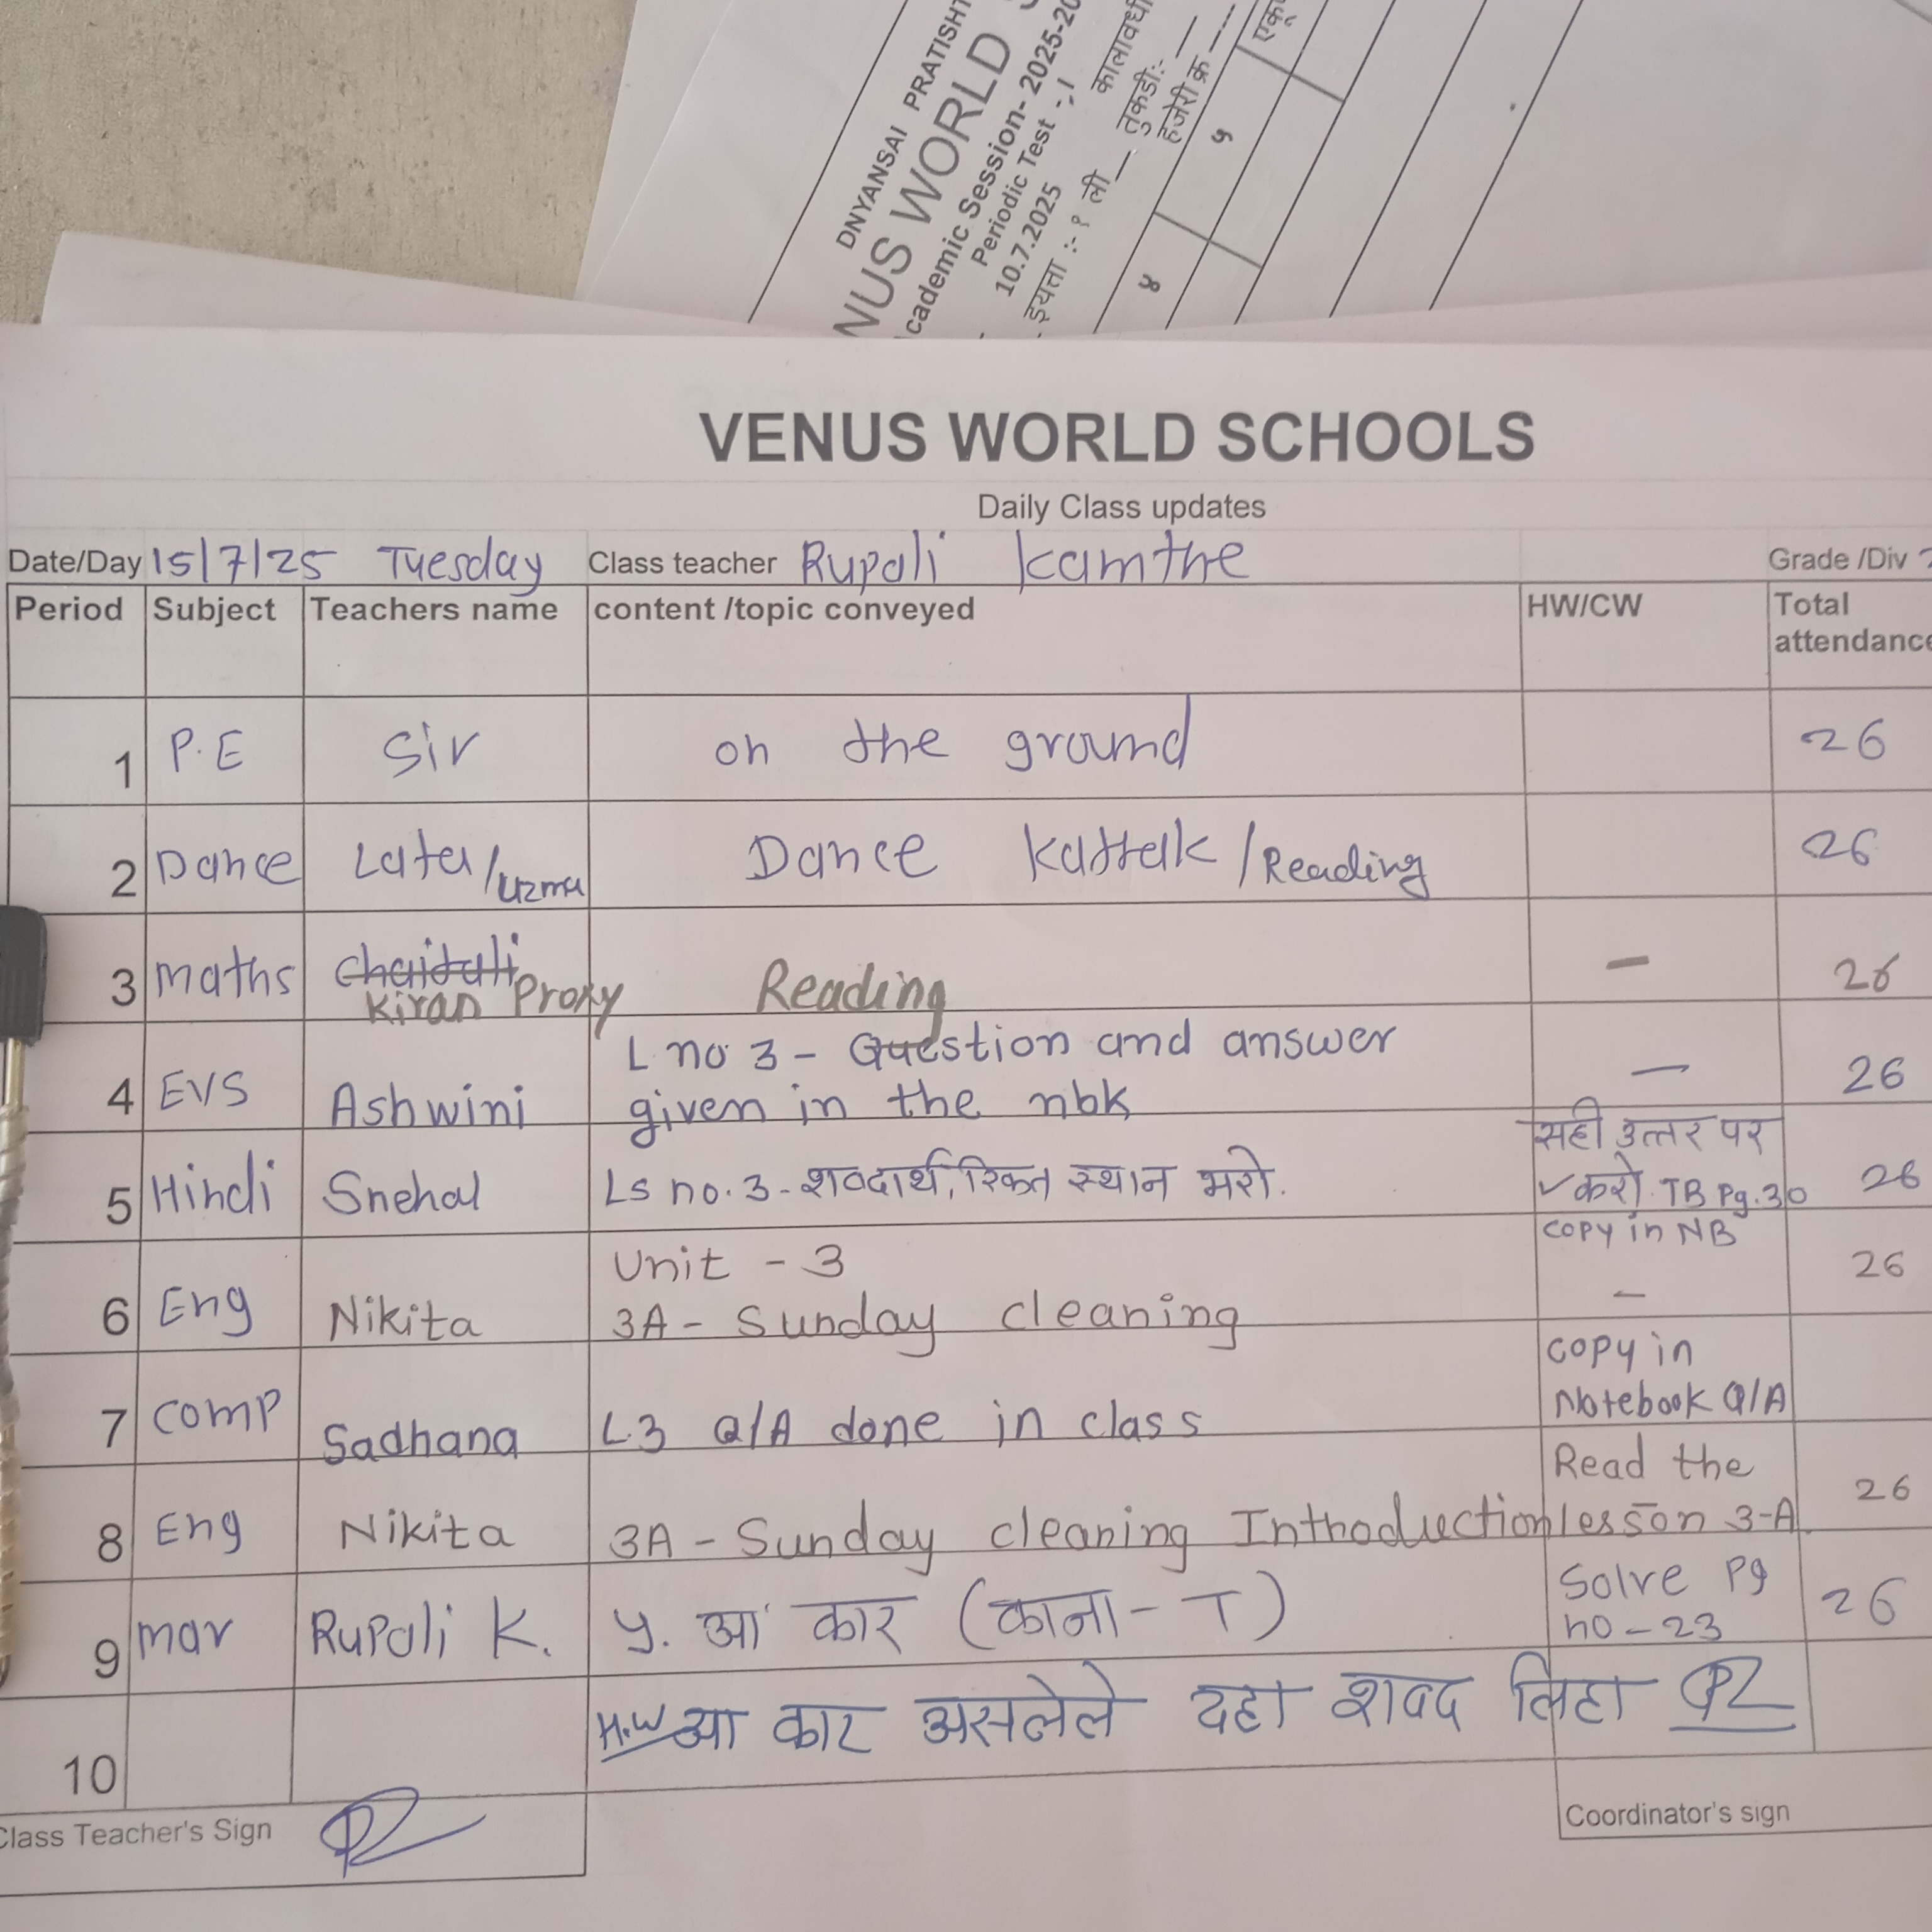 DNYANSAI PRATISHT
NUS WORLD
cademic Session- 2025-20
Periodic Test -,1
10.7.2025
कालावधी
इयत्ता :- १ ली
तुकडी:-
हजेरी क्र
एकू
४
५
VENUS WORLD SCHOOLS
Daily Class updates
Date/Day 15/7/25 Tuesday Class teacher Rupali Kamthe Grade /Div
Period Subject Teachers name content /topic conveyed HW/CW Total attendance
1 P.E Sir on the ground 26
2 Dance Lata/Uzma Dance Kattak / Reading 26
3 maths Chaitali Kiran Proxy Reading — 26
4 EVS Ashwini L no 3 - Question and answer given in the nbk — 26
5 Hindi Snehal Ls no. 3 - शब्दार्थ, रिक्त स्थान भरो. सही उत्तर पर ✓ करो. TB Pg. 30 26
copy in NB
6 Eng Nikita Unit - 3 3A - Sunday cleaning — 26
7 comp Sadhana L3 Q/A done in class copy in Notebook Q/A
8 Eng Nikita 3A - Sunday cleaning Inthoduction Read the lesson 3-A 26
9 mar Rupali K. y. आ कार (काना - ा) Solve Pg no - 23 26
10 H.W आ कार असलेले दहा शब्द लिहा
Class Teacher's Sign
Coordinator's sign